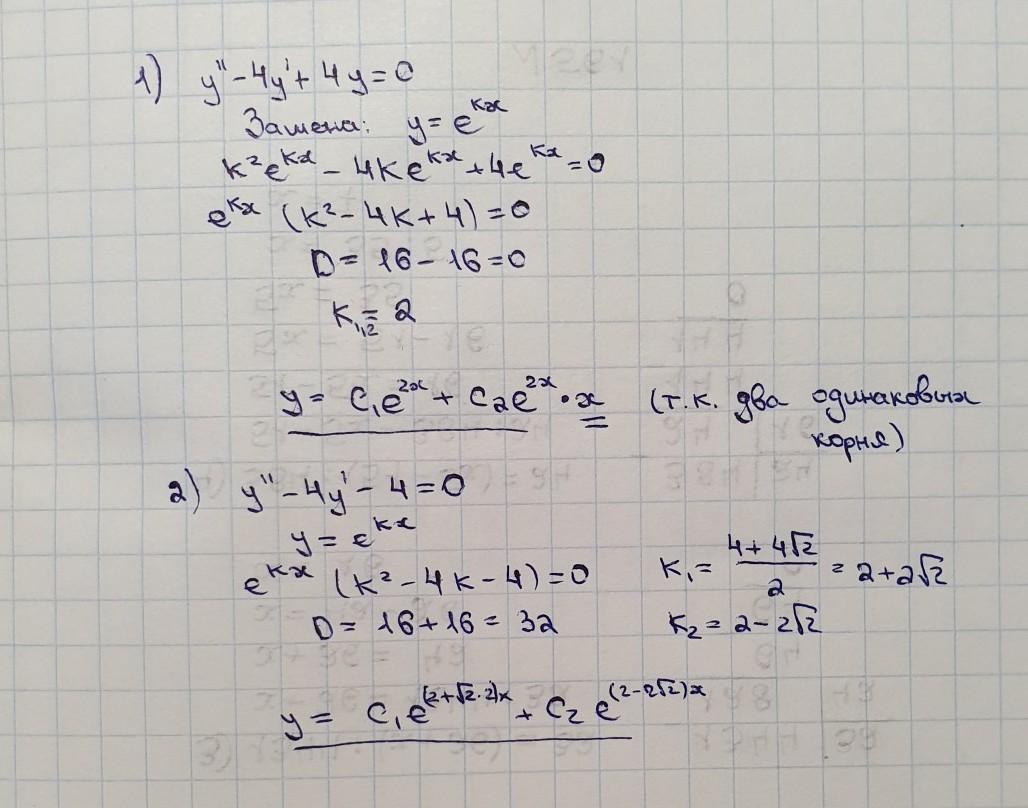 1) y'' - 4y' + 4y = 0
Замена: y = e^{kx}
k²e^{kx} - 4ke^{kx} + 4e^{kx} = 0
e^{kx} (k² - 4k + 4) = 0
D = 16 - 16 = 0
K₁,₂ = 2
y = C₁e^{2x} + C₂e^{2x} · x (т.к. два одинаковых
корня)
2) y'' - 4y' - 4 = 0
y = e^{kx}
e^{kx} (k² - 4k - 4) = 0
D = 16 + 16 = 32
K₁ = (4 + 4√2)/2 = 2 + 2√2
K₂ = 2 - 2√2
y = C₁e^{(2+√2·2)x} + C₂e^{(2-2√2)x}